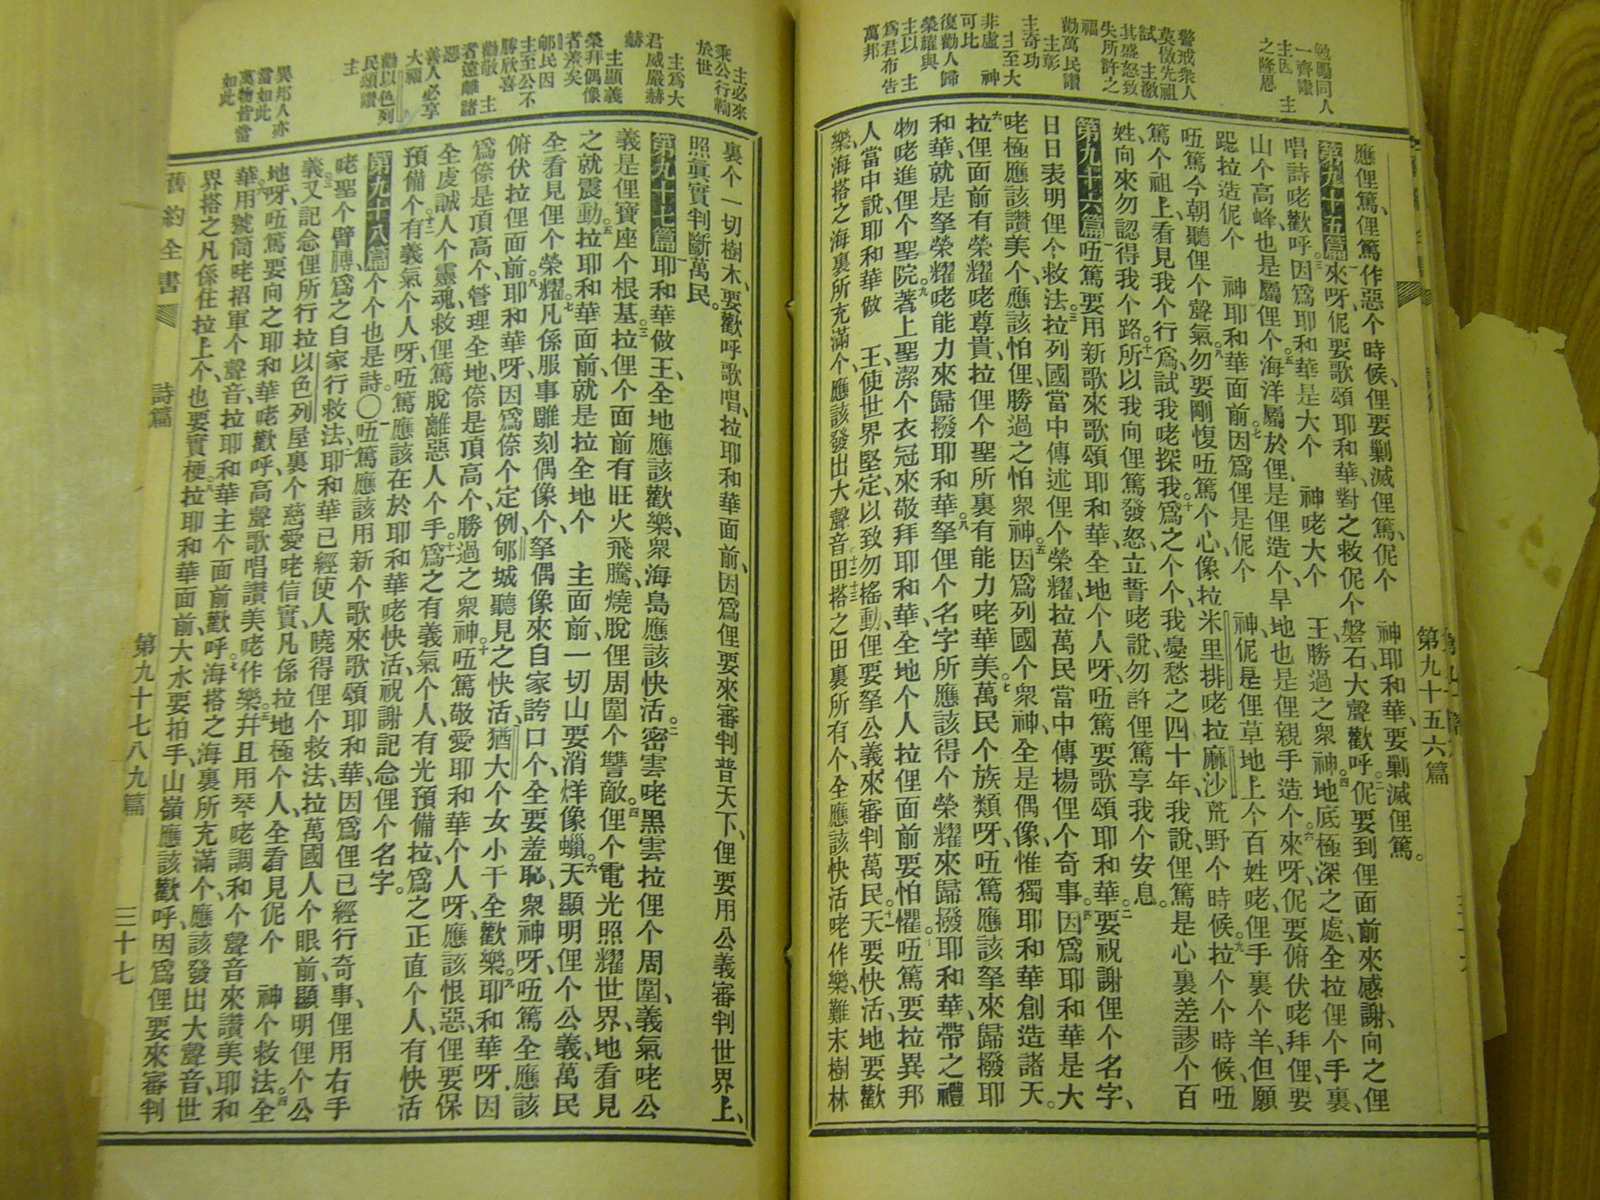 勉勵同人
一齊讚
主因 主
之隆恩
警戒衆人
莫倣先祖
試 主激
其盛怒致
失所許之
福
勸萬民讚
主彰
主奇功
主至大
非虛 神
可比
復勸人歸
榮耀與
主以 主
爲君布告
萬邦
第九十五六篇
應俚篤、俚篤作惡个時候、俚要剿滅俚篤、伲个 神耶和華、要剿滅俚篤。
第九十五篇 來呀、伲要歌頌耶和華、對之救伲个磐石大聲歡呼。伲要到俚面前來感謝、向之俚
唱詩咾歡呼。因爲耶和華是大个 神咾大个 王、勝過之衆神。地底極深之處、全拉俚个手裏、
山个高峰、也是屬俚个。海洋屬於俚、是俚造个、旱地也是俚親手造个。來呀、伲要俯伏咾拜、俚要
跽拉造伲个 神耶和華面前。因爲俚是伲个 神、伲是俚草地上个百姓咾俚手裏个羊、但願
㕶篤今朝聽俚个聲氣。勿要剛愎㕶篤个心、像拉米里排咾拉麻沙荒野个時候。拉个个時候、㕶
篤个祖上、看見我个行爲、試我咾探我。爲之个个、我憂愁之四十年、我說、俚篤是心裏差謬个百
姓、向來勿認得我个路。所以我向俚篤發怒立誓咾說、勿許俚篤享我个安息。
第九十六篇 㕶篤要用新歌來歌頌耶和華、全地个人呀、㕶篤要歌頌耶和華。要祝謝俚个名字、
日日表明俚个救法。拉列國當中傳述俚个榮耀、拉萬民當中傳揚俚个奇事。因爲耶和華是大
咾極應該讚美个、應該怕俚、勝過之怕衆神。因爲列國个衆神、全是偶像、惟獨耶和華創造諸天。
拉俚面前有榮耀咾尊貴、拉俚个聖所裏有能力咾華美。萬民个族類呀、㕶篤應該拏來歸撥耶
和華、就是拏榮耀咾能力來歸撥耶和華。拏俚个名字所應該得个榮耀來歸撥耶和華、帶之禮
物咾進俚个聖院。著上聖潔个衣冠來敬拜耶和華、全地个人拉俚面前要怕懼。㕶篤要拉異邦
人當中說、耶和華做 王、使世界堅定、以致勿搖動、俚要拏公義來審判萬民。天要快活、地要歡
樂、海搭之海裏所充滿个、應該發出大聲音。田搭之田裏所有个、全應該快活咾作樂、難末樹林
主必來
秉公行鞫
於世
主爲大
君威嚴赫
赫
主顯義
榮拜偶像
者羞矣
郇民因
主至公不
勝欣喜
勸敬 主
者遠離諸
惡
善人必享
大福
勸以色列
民頌讚
主
異邦人亦
當如此
萬物皆當
如此
裏个一切樹木、要歡呼歌唱、拉耶和華面前、因爲俚要來審判普天下、俚要用公義審判世界上、
照眞實判斷萬民。
第九十七篇 耶和華做王、全地應該歡樂、衆海島應該快活。密雲咾黑雲拉俚个周圍、義氣咾公
義是俚寶座个根基。拉俚个面前有旺火飛騰、燒脫俚周圍个讐敵。俚个電光照耀世界、地看見
之就震動。拉耶和華面前、就是拉全地个 主面前、一切山要消烊像蠟。天顯明俚个公義、萬民
全看見俚个榮耀。凡係服事雕刻偶像个、拏偶像來自家誇口个、全要羞恥、衆神呀、㕶篤全應該
俯伏拉俚面前。耶和華呀、因爲倷个定例、郇城聽見之快活、猶大个女小干全歡樂。耶和華呀、因
爲倷是頂高个、管理全地、倷是頂高个、勝過之衆神。㕶篤敬愛耶和華个人呀、應該恨惡、俚要保
全虔誠人个靈魂、救俚篤脫離惡人个手。爲之有義氣个人、有光預備拉、爲之正直个人、有快活
預備个。有義氣个人呀、㕶篤應該在於耶和華咾快活、祝謝記念俚个名字。
第九十八篇 个个也是詩。〇㕶篤應該用新个歌來歌頌耶和華、因爲俚已經行奇事、俚用右手
咾聖个臂膊、爲之自家行救法。耶和華已經使人曉得俚个救法、拉萬國人个眼前、顯明俚个公
義。又記念俚所行拉以色列屋裏个慈愛咾信實、凡係拉地極个人、全看見伲个 神个救法。全
地呀、㕶篤要向之耶和華咾歡呼、高聲歌唱讚美咾作樂。幷且用琴咾調和个聲音來讚美耶和
華。用號筒咾招軍个聲音、拉耶和華主个面前歡呼。海搭之海裏所充滿个、應該發出大聲音、世
界搭之凡係住拉上个、也要實梗。拉耶和華面前、大水要拍手、山嶺應該歡呼、因爲俚要來審判
舊約全書 詩篇 第九十七八九篇 三十七